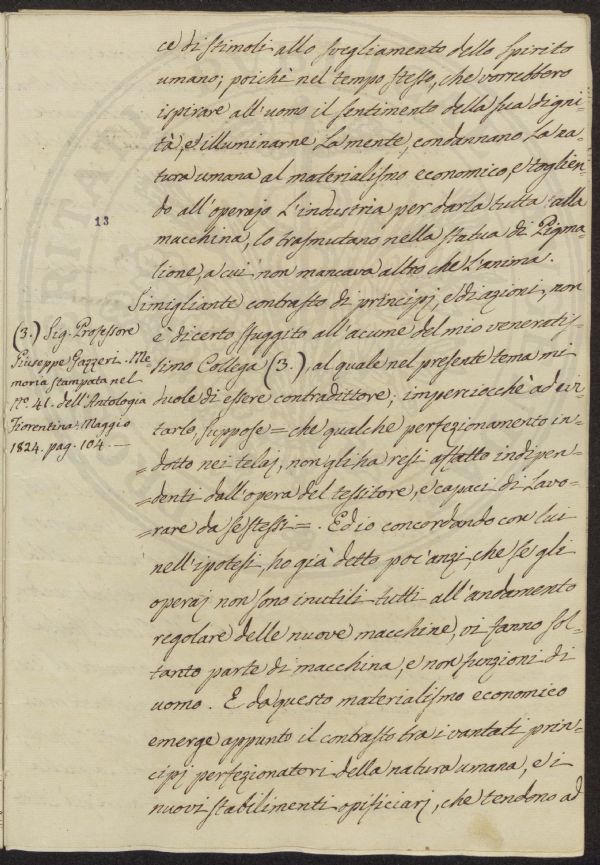 ce di stimoli allo svegliamento dello spirito
umano; poichè nel tempo stesso, che vorrebbero
ispirare all'uomo il sentimento della sua digni-
tà, ed illuminarne la mente, condannano la na-
tura umana al materialismo economico, e toglien-
do all'operajo l'industria per darla tutta alla
macchina, lo trasmutano nella statua di Pigma-
lione, a cui non mancava altro che l'anima.
Simigliante contrasto di principj, e di azioni, non
è di certo sfuggito all'acume del mio veneratis-
simo Collega (3.), al quale nel presente tema mi
duole di essere contradittore; imperciocchè ad evi-
tarlo, suppose = che qualche perfezionamento in-
= dotto nei telaj, non gli ha resi affatto indipen-
= denti dall'opera del tessitore, e capaci di lavo-
= rare da se stessi =. Ed io concordando con lui
nell'ipotesi, ho già detto poc'anzi, che se gli
operaj non sono inutili tutti all'andamento
regolare delle nuove macchine, vi fanno sol-
tanto parte di macchina, e non funzioni di
uomo. E da questo materialismo economico
emerge appunto il contrasto tra i vantati prin-
cipj perfezionatori della natura umana, e i
nuovi stabilimenti opificiarj, che tendono ad
13
(3.) Sig. Professore
Giuseppe Gazzeri. Me-
moria stampata nel
N.o 41. dell'Antologia
Fiorentina. Maggio
1824. pag. 104. —